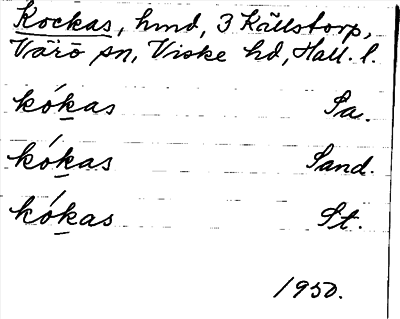 Kockas, hmd, 3 Källstorp,
Värö sn, Viske hd, Hall. l.
kókas Sa.
kókas Sand.
kókas St.
1950.